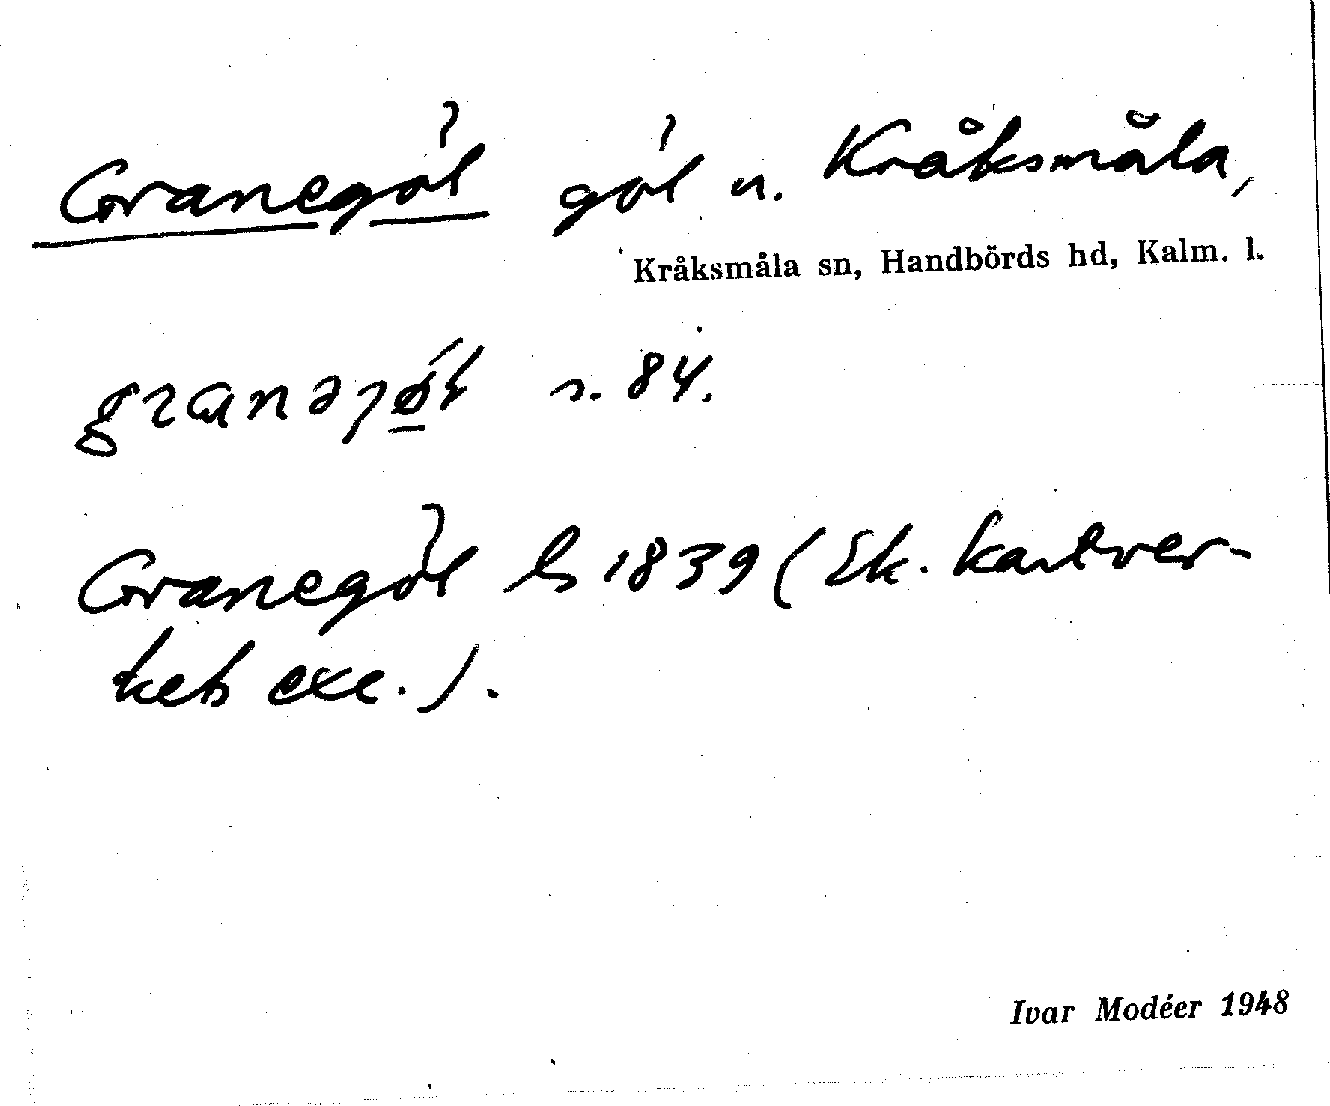 Granegöl göl n. Kråksmåla,
Kråksmåla sn, Handbörds hd, Kalm. l.
s. 84.
Granegöl ls 1839 (Ek. kartver-
kets exc.).
Ivar Modéer 1948